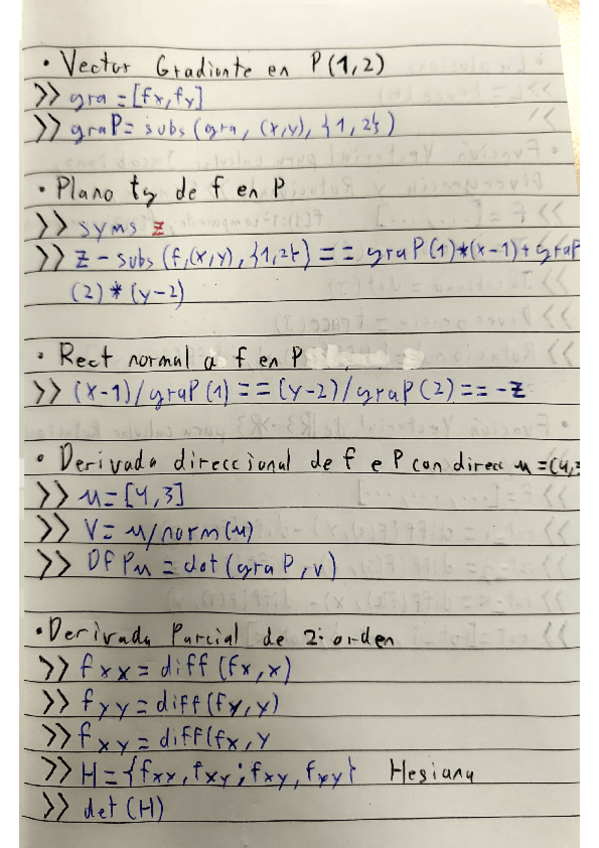 • Vector Gradiente en P(1,2)
>> gra = [fx, fy]
>> graP = subs (gra, (x,y), {1,2})
• Plano tg de f en P
>> syms z
>> z - subs (f, (x,y), {1,2}) == graP(1)*(x-1) + graP
(2) * (y-2)
• Rect normal a f en P
>> (x-1)/graP(1) == (y-2)/graP(2) == -z
• Derivada direccional de f e P con direcc u = (4,3
>> u = [4,3]
>> V = u/norm(u)
>> DfPu = dot (graP, v)
• Derivada Parcial de 2: orden
>> fxx = diff (fx, x)
>> fyy = diff (fy, y)
>> fxy = diff(fx, y
>> H = {fxx, fxy; fxy, fyy} Hesiana
>> det (H)